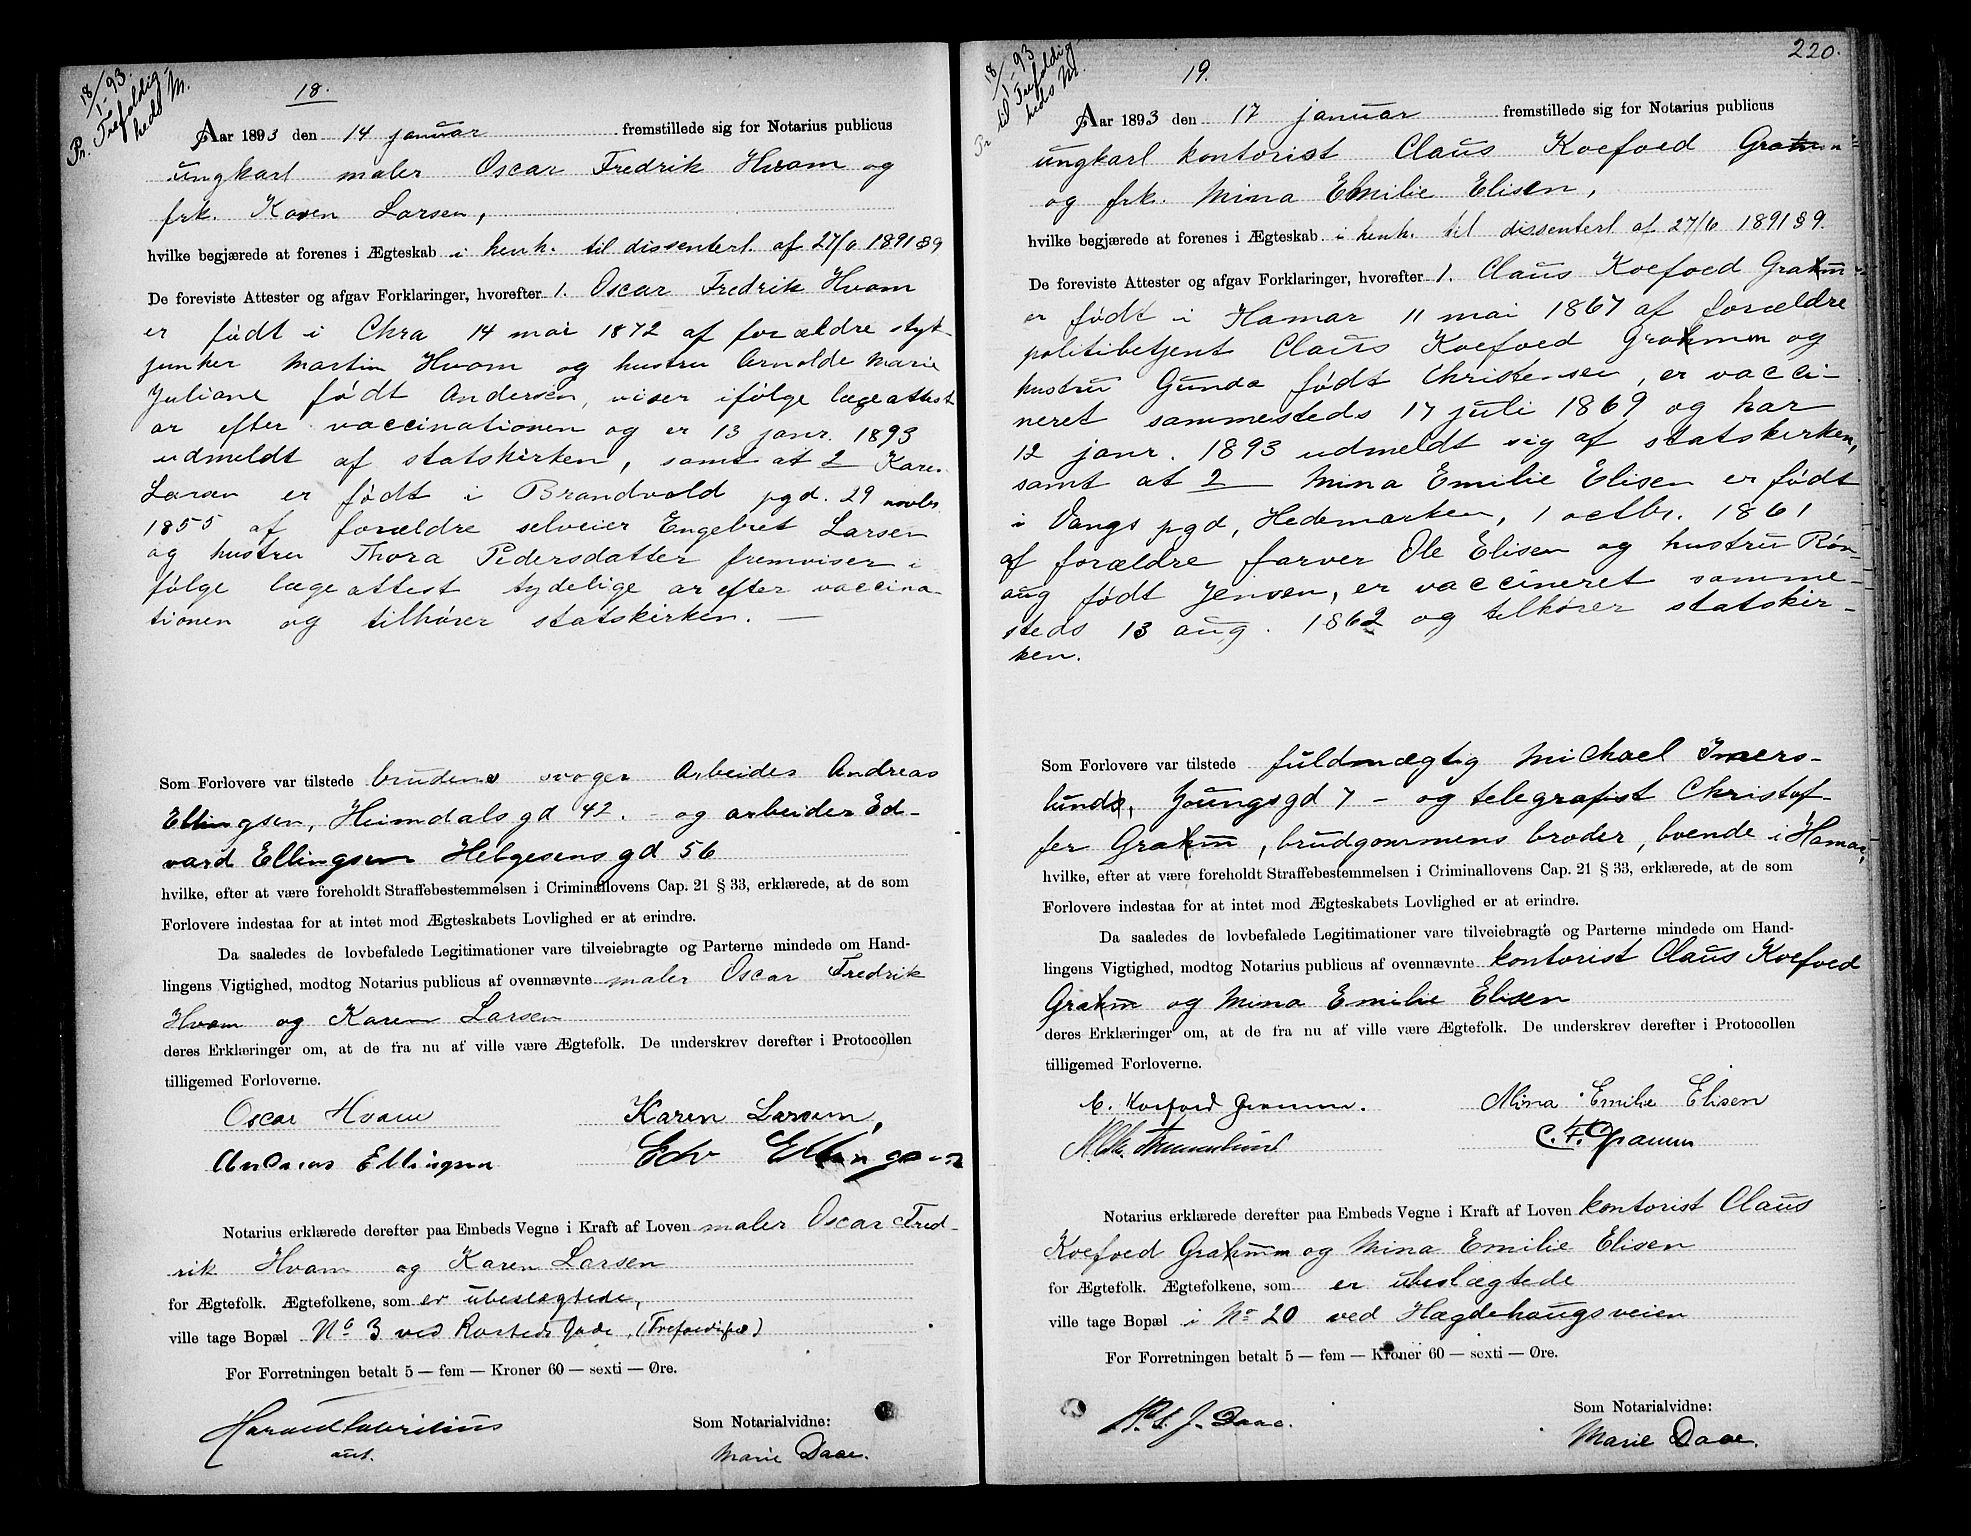 18/1-93.
Pr. Trefoldig-
heds M.
18.
Aar 1893 den 14 januar fremstillede sig for Notarius publicus
ungkarl maler Oscar Fredrik Hvam og
frk. Karen Larsen,
hvilke begjærede at forenes i Ægteskab i henh. til dissenterl. af 27/6 1891 § 9
De foreviste Attester og afgav Forklaringer, hvorefter 1. Oscar Fredrik Hvam
er født i Chra 14 mai 1872 af forældre styk-
junker Martin Hvam og hustru Arnolde Marie
Juliane født Andersen, viser ifølge lægeattest
ar efter vaccinationen og er 13 janr. 1893
udmeldt af statskirken, samt at 2 Karen
Larsen er født i Brandvold pgd. 29 novbr
1855 af forældre selveier Engebret Larsen
og hustru Thora Pedersdatter fremviser i
følge lægeattest tydelige ar efter vaccina-
tionen og tilhører statskirken. —
Som Forlovere var tilstede brudens svoger Arbeider Andreas
Ellingsen, Heimdalsgd 42. - og arbeider Ed-
vard Ellingsen Helgesensgd 56
hvilke, efter at være foreholdt Straffebestemmelsen i Criminallovens Cap. 21 § 33, erklærede, at de som
Forlovere indestaa for at intet mod Ægteskabets Lovlighed er at erindre.
Da saaledes de lovbefalede Legitimationer vare tilveiebragte og Parterne mindede om Hand-
lingens Vigtighed, modtog Notarius publicus af ovennævnte maler Oscar Fredrik
Hvam og Karen Larsen
deres Erklæringer om, at de fra nu af ville være Ægtefolk. De underskrev derefter i Protocollen
tilligemed Forloverne.
Oscar Hvam Karen Larsen,
Andreas Ellingsen Edv Ellingsen
Notarius erklærede derefter paa Embeds Vegne i Kraft af Loven maler Oscar Fred-
rik Hvam og Karen Larsen
for Ægtefolk. Ægtefolkene, som er ubeslegtede,
ville tage Bopæl No 3 ved Rosteds Gade, (Trefoldighed)
For Forretningen betalt 5 — fem — Kroner 60 — sexti — Øre.
Som Notarialvidne:
aut. Marie Daae.
220.
18/1-93
Pr til Trefoldig-
heds M.
19.
Aar 1893 den 17 januar fremstillede sig for Notarius publicus
ungkarl kontorist Claus Koefoed Gramm
og frk. Mina Emilie Elisen,
hvilke begjærede at forenes i Ægteskab i henh. til dissenterl af 27/6 1891 § 9.
De foreviste Attester og afgav Forklaringer, hvorefter 1. Claus Koefoed Gramm
er født i Hamar 11 mai 1867 af forældre
politibetjent Claus Koefoed Gramm og
hustru Gunda født Christensen, er vacci-
neret sammesteds 17 juli 1869 og har
12 janr. 1893 udmeldt sig af statskirken,
samt at 2 Mina Emilie Elisen er født
i Vangs pgd, Hedemarken, 1 octbr. 1861
af forældre farver Ole Elisen og hustru Røn-
aug født Jensen, er vaccineret samme-
steds 13 aug. 1862 og tilhører statskir-
ken.
Som Forlovere var tilstede fuldmægtig Michael Imers-
lund, Youngsgd 7 - og telegrafist Christof-
fer Gramm, brudgommens broder, boende i Hamar,
hvilke, efter at være foreholdt Straffebestemmelsen i Criminallovens Cap. 21 § 33, erklærede, at de som
Forlovere indestaa for at intet mod Ægteskabets Lovlighed er at erindre.
Da saaledes de lovbefalede Legitimationer vare tilveiebragte og Parterne mindede om Hand-
lingens Vigtighed, modtog Notarius publicus af ovennævnte kontorist Claus Koefoed
Gramm og Mina Emilie Elisen
deres Erklæringer om, at de fra nu af ville være Ægtefolk. De underskrev derefter i Protocollen
tilligemed Forloverne.
C. Koefoed Gramm. Mina Emilie Elisen
Immerslund C. F. Gramm
Notarius erklærede derefter paa Embeds Vegne i Kraft af Loven kontorist Claus
Koefoed Gramm og Mina Emilie Elisen
for Ægtefolk. Ægtefolkene, som er ubeslægtede
ville tage Bopæl i No 20 ved Hægdehaugsveien
For Forretningen betalt 5 — fem — Kroner 60 — sexti — Øre.
Som Notarialvidne:
J. Daae. Marie Daae.